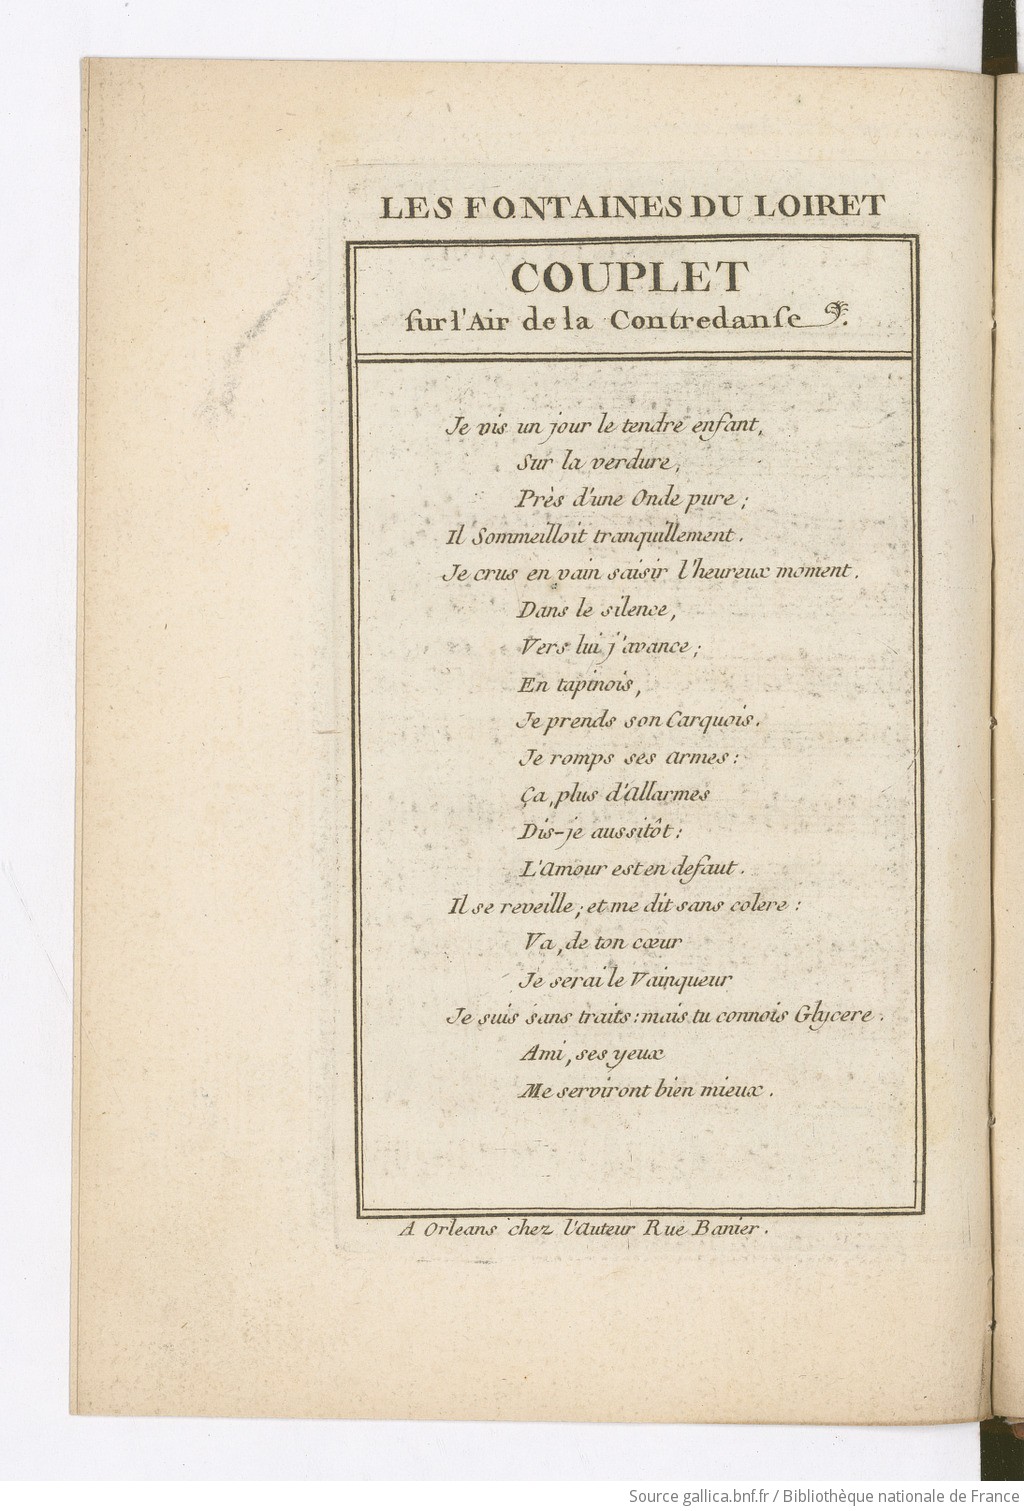 LES FONTAINES DU LOIRET
COUPLET
sur l'Air de la Contredanse.
Je vis un jour le tendre enfant,
Sur la verdure,
Près d'une Onde pure ;
Il Sommeilloit tranquillement.
Je crus en vain saisir l'heureux moment.
Dans le silence,
Vers lui j'avance ;
En tapinois,
Je prends son Carquois.
Je romps ses armes :
Ça, plus d'Allarmes
Dis-je aussitôt :
L'Amour est en defaut.
Il se reveille ; et me dit sans colere :
Va, de ton cœur
Je serai le Vainqueur
Je suis sans traits : mais tu connois Glycere.
Ami, ses yeux
Me serviront bien mieux.
A Orleans chez l'Auteur Rue Banier.
Source gallica.bnf.fr / Bibliothèque nationale de France